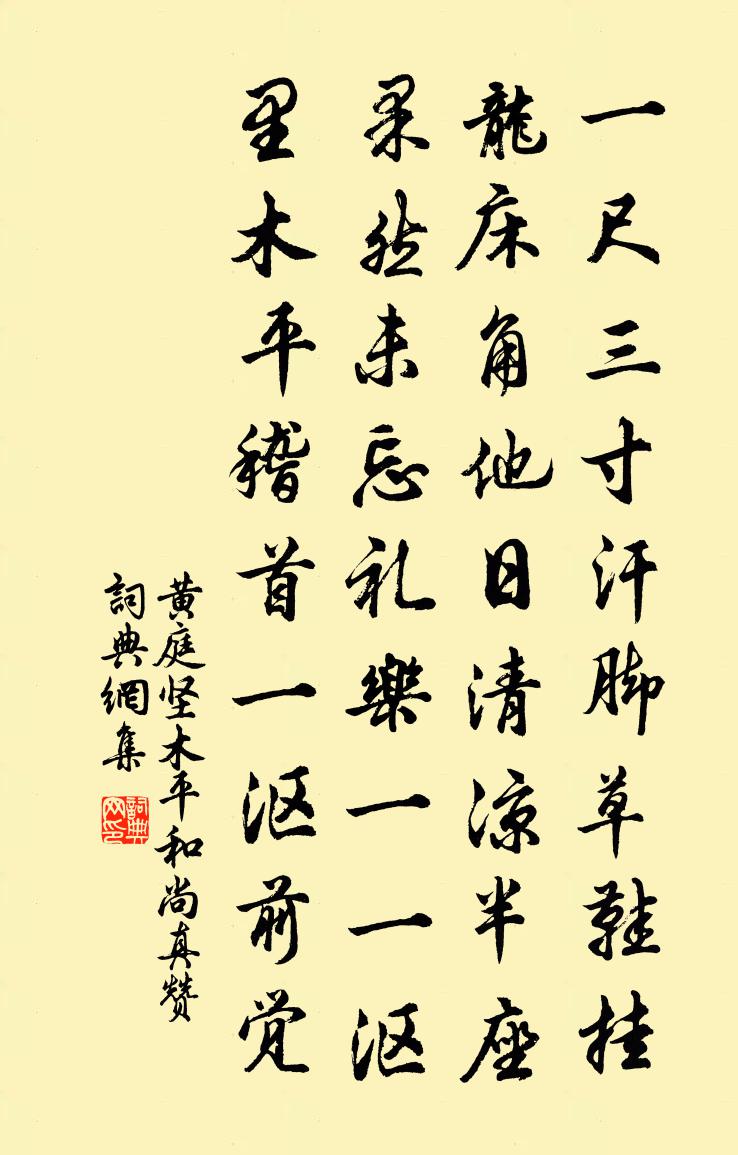 一尺三寸汗脚草鞋挂
龍床角他日清凉半座
果然未忘礼樂一一沤
里木平稽首一沤前觉
黄庭坚木平和尚真赞
詞典網集
詞典网印